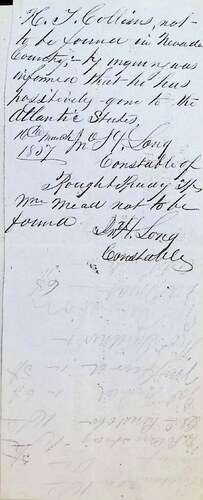 H. T. Collins, not
to be found in Nevada
County, – by inquiry was
informed that he has
positively gone to the
Atlantic States,
10th March
1857
Long
Constable of
Rough & Ready Tp
Wm Mead not to be
found
Jn H. Long
Constable